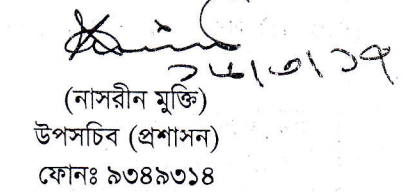 (নাসরীন মুক্তি)
উপসচিব (প্রশাসন)
ফোনঃ ৯৩৪৯৩১৪